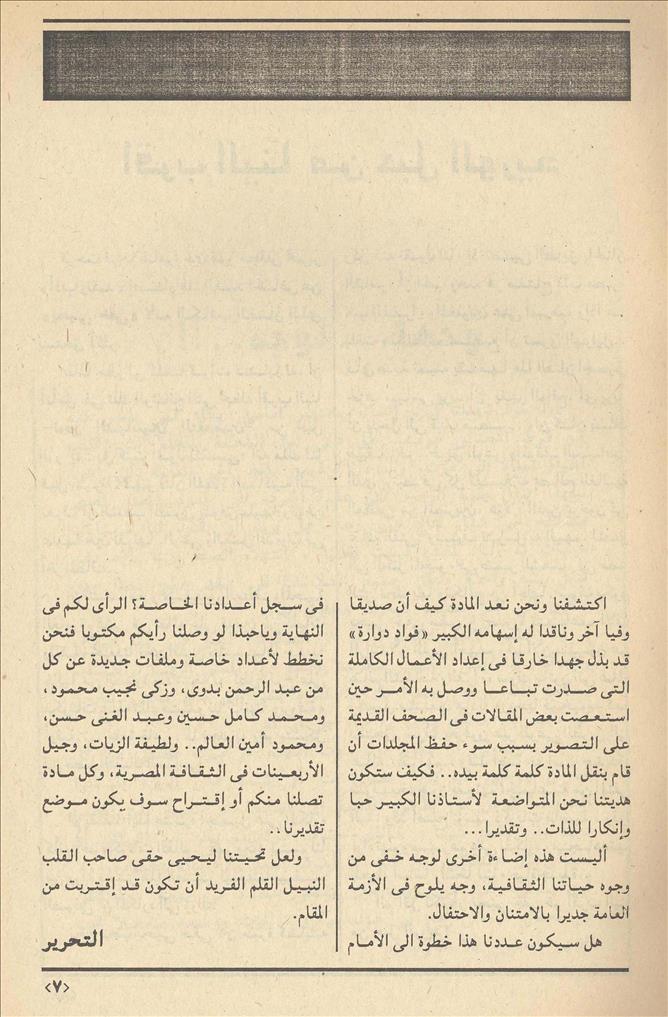 اكتشفنا ونحن نعد المادة كيف أن صديقا
وفيا آخر وناقدا له إسهامه الكبير «فواد دوارة»
قد بذل جهدا خارقا فى إعداد الأعمال الكاملة
التى صدرت تباعا ووصل به الأمر حين
استعصت بعض المقالات فى الصحف القديمة
على التصوير بسبب سوء حفظ المجلدات أن
قام بنقل المادة كلمة كلمة بيده.. فكيف ستكون
هديتنا نحن المتواضعة لأستاذنا الكبير حبا
وإنكارا للذات.. وتقديرا...
أليست هذه إضاءة أخرى لوجه خفى من
وجوه حياتنا الثقافية، وجه يلوح فى الأزمة
العامة جديرا بالامتنان والاحتفال.
هل سيكون عددنا هذا خطوة الى الأمام
فى سجل أعدادنا الخاصة؟ الرأى لكم فى
النهاية وياحبذا لو وصلنا رأيكم مكتوبا فنحن
نخطط لأعداد خاصة وملفات جديدة عن كل
من عبد الرحمن بدوى، وزكى نجيب محمود،
ومحمد كامل حسين وعبد الغنى حسن،
ومحمود أمين العالم.. ولطيفة الزيات، وجيل
الأربعينات فى الثقافة المصرية، وكل مادة
تصلنا منكم أو إقتراح سوف يكون موضع
تقديرنا..
ولعل تحيتنا ليحيى حقى صاحب القلب
النبيل القلم الفريد أن تكون قد إقتربت من
المقام.
التحرير
<٧>